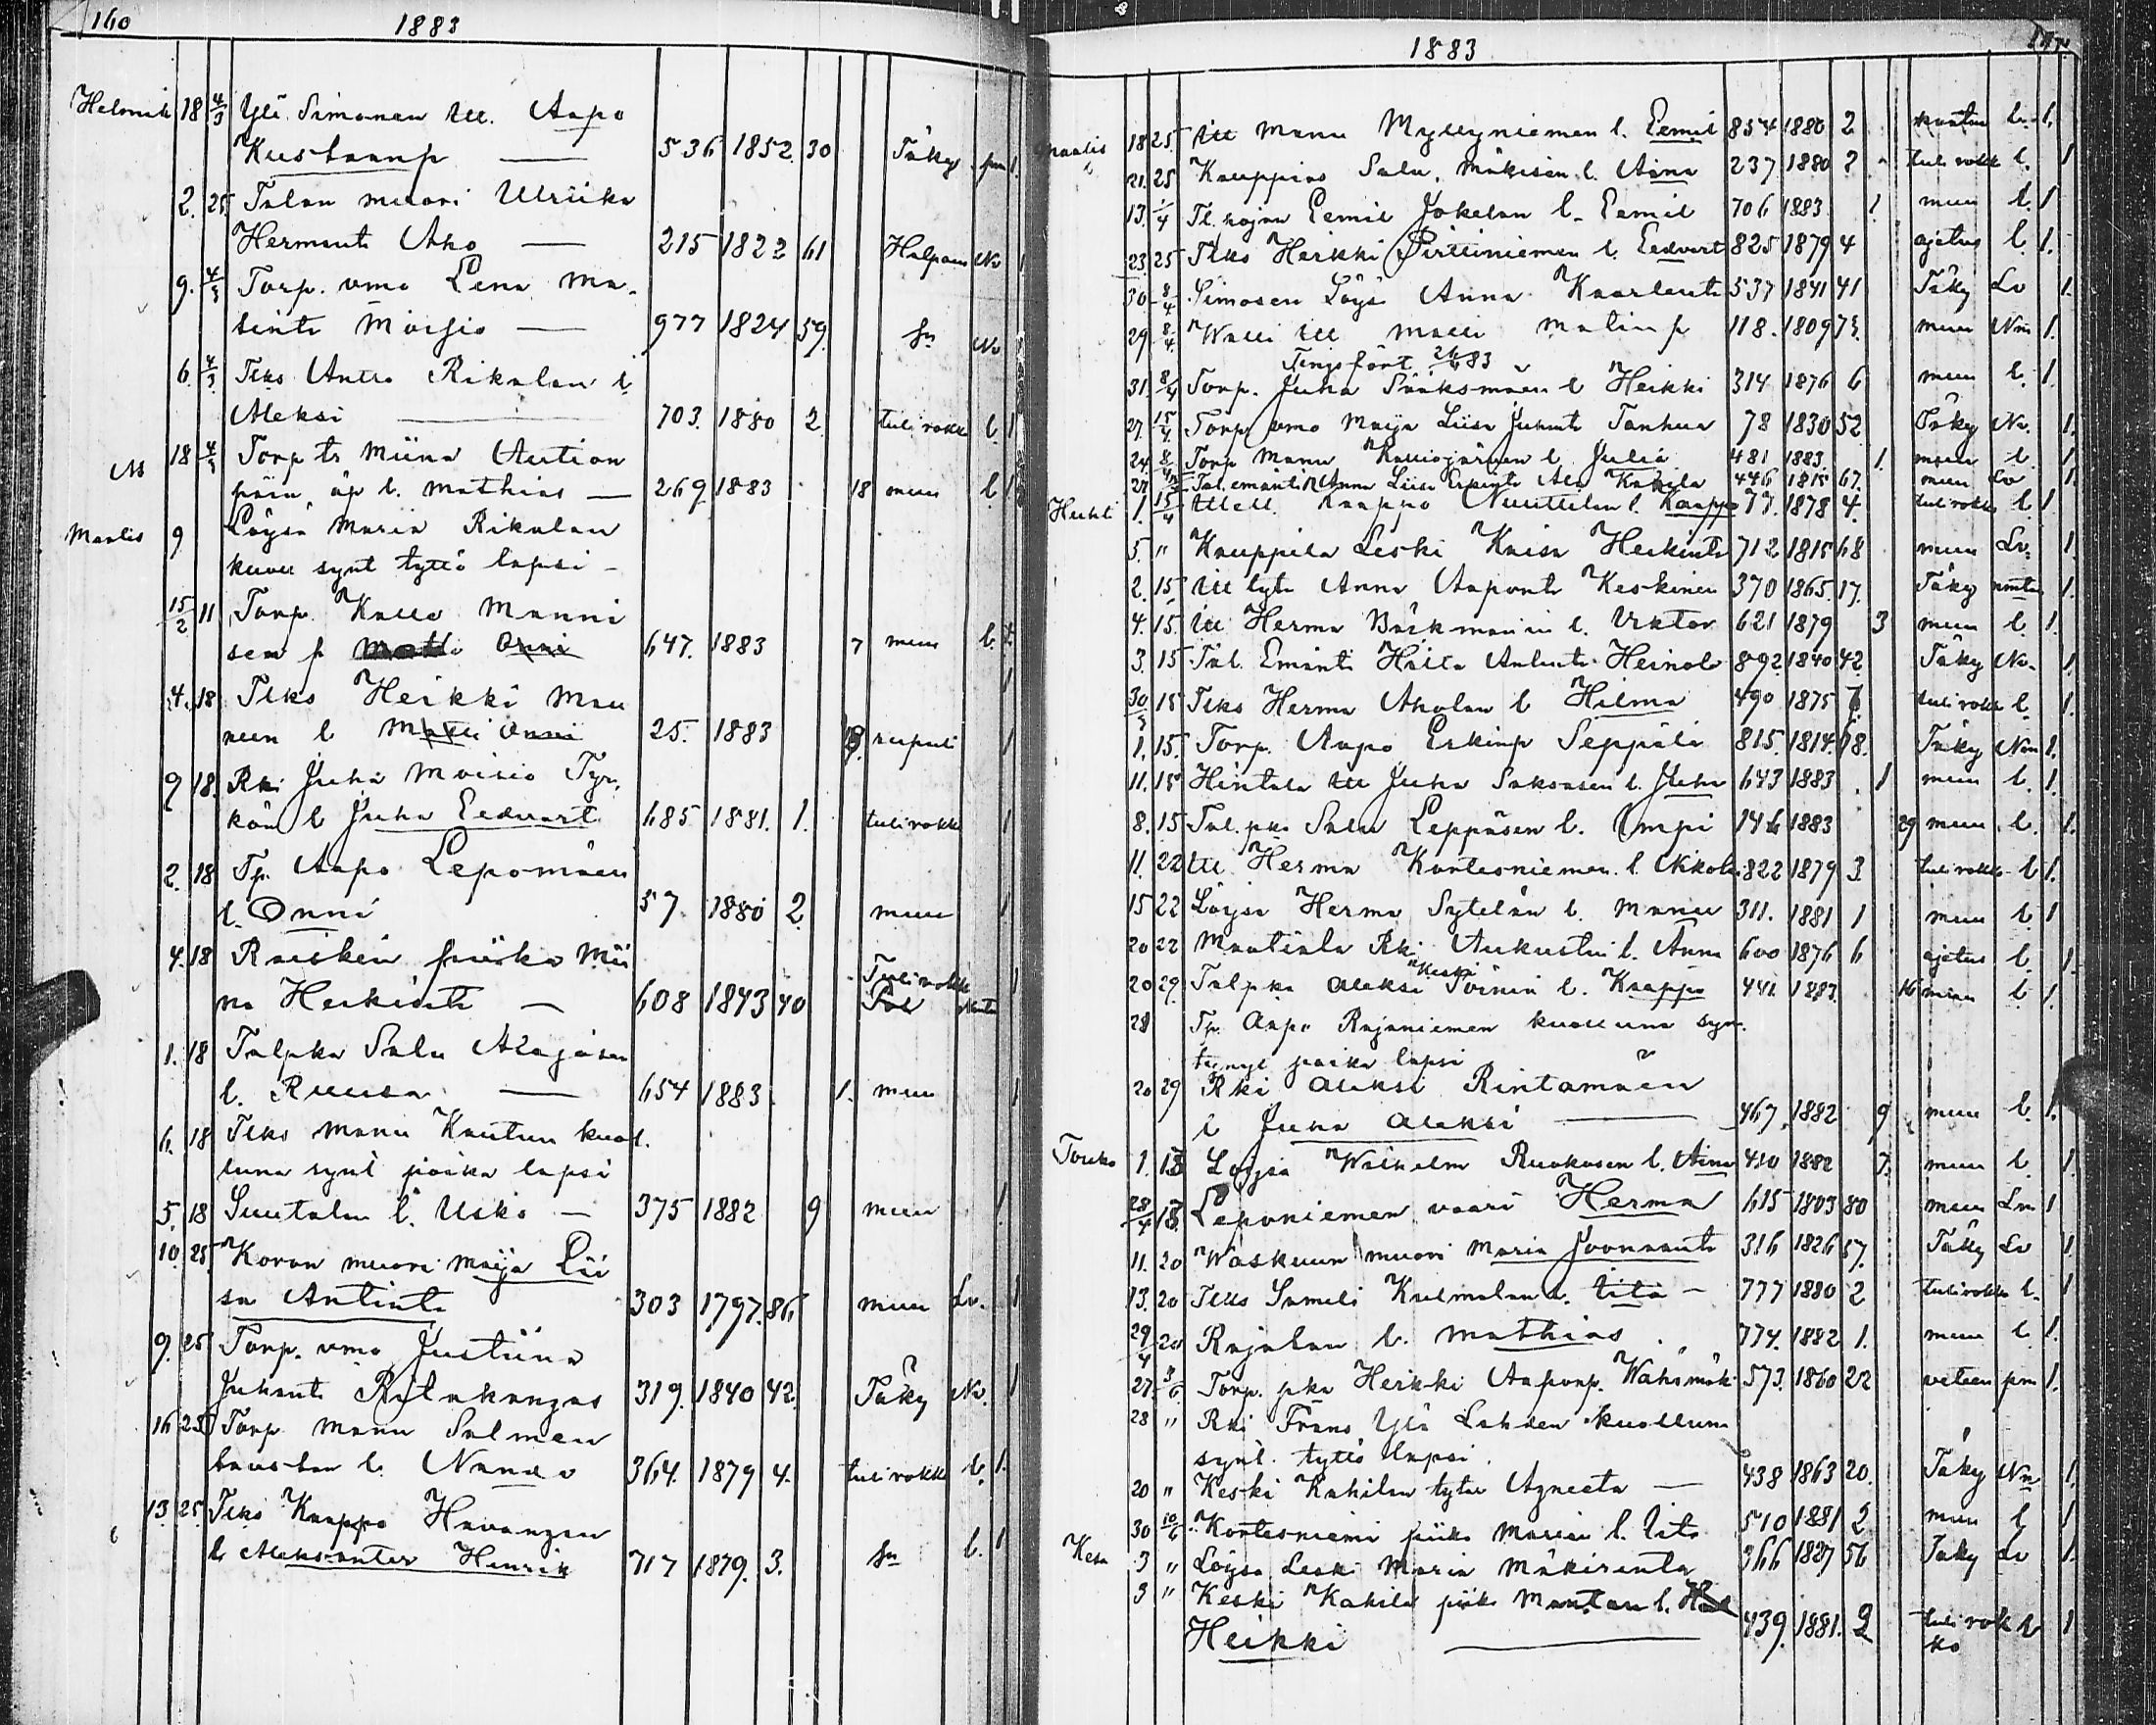 160 1883
Helmik 18 4/3 Yli Simonen itt. Aapo
Kustaanp — 536 1852. 30 Täky pm 1.
2. 25. Talan muori Ulriika
Hermanti Aho — 215 1822 61 Halpaus Nv 1
9. 4/3 Torp. vmo Lena Ma-
tintr Moisio — 977 1824 59. Sn Nv
6. 4/3 Tlks Antto Rikalan l.
Aleksi — 703. 1880 2. tulirokko l. 1
M 18 4/3 Torp tr Miina Aution
pään, äp l. Mathias — 269 1883 18 muu l. 1
Maalis 9 Löysä Maria Rikalan
kuou synt tyttö lapsi —
15/2 11 Torp. Kalle Manni
sen p Onni 647. 1883 7 muu l. 1
4. 18 Tlks Heikki Man
nin l Matti Onni 25. 1883 rupuli 1
9 18. Rki Juha Moisio Tyr.
kön l Juha Eedvart 685 1881. 1. tulirokko 1
2. 18 Tp. Aapo Lepomäen
l. Onni 57. 1880 2. muu 1
4. 18 Raiskin piika Mii
na Heikintr — 608 1843 40 Tulirokko 1
1. 18 Talpka Salu Alajäsen
l. Ruusa — 654 1883. 1. muu 1
6. 18 Tlks Manu Kautun kuol.
luna synt poika lapsi
5. 18 Suutalan l. Usko — 375 1882 9 muu 1.
10. 25. Kovan muori Maija Lii
sa Antintr 303 1797. 86. muu Lv. 1
9. 25 Torp. vmo Justiina
Juhanti Riitakangas 319. 1840 42. Täky Nv. 1
16 25 Torp Manu Salmen
taustan l. Nando 364. 1879 4. tulirokko l. 1.
13. 25. Tlks Kaappo Havangan
l. Aleksanter Henrik 717 1879. 3. Sn l. 1
1883
Maalis 18 25. itt Manu Myllyniemen l. Eemil 854 1880 2 l. 1.
21. 25 Kauppias Salu. Mäkisen l. Aina 237 1880 2 tulirokk l. 1
13. 1/4 Tl. rojan Eemil Jokelan l. Eemil 706 1883 1. muu l. 1
23 25 Tlks Heikki Pirttiniemen l. Eedvart 825 1879 4 ajetus l. 1.
30 8/4 Simosen Löysä Anna Kaarlentr 537 1841 41 Täky Lv 1.
29 8/4. Walli itt Malli Matinp 118. 1809 73. muu Nm 1.
Tingsfört 24/4 83
31 8/4 Torp. Juha Sääksmäen l Heikki 314 1876 6 muu l. 1.
27. 15/4. Torp vmo Maija Liisa Juhant Tanhua 78 1830 52 Täky Nv. 1.
24. 8/4 Torp Manu Kalliojärven l. Julia 481 1883 1. muu l. 1
27 Tal. emäntä Anna Liisa Erkintr Ala Kahila 446 1815 67. muu Lv 1.
Huhti 1. 15/4 Kaappo Nuuttilan l. Kaappo 77. 1878 4. tulirokko l. 1
5. " Kauppila Leski Kaisa Heikintr 712 1815 68 muu Lv. 1.
2. 15. itt tyt. Anna Aapontr Keskinen 370 1865. 17. Täky 1.
4. 15. itt Herma Bäckmannin l. Viktor 621 1879 3 muu l. 1.
3. 15 Tal. Emänti Hilta Antintr Heinola 892. 1840 42 Täky Nv. 1.
30/3 15 Tlks Herma Aholan l Hilma 490 1875 tulirokk l. 1.
1. 15. Torp. Aapo Erkinp Seppälä 815. 1814. Täky Nm 1.
11. 15 Hintala itt Juha Saksasen l. Juha 643 1883 1 muu l. 1.
8. 15 Tal. pka Salu Leppäsen l. Impi 146 1883 29 muu l. 1.
11. 22 itt Herma Kortesniemen l. Nikolai 822 1879 3. tulirokko l 1.
15 22 Löysä Herma Sytelän l. Manu 311. 1881 1 muu l. 1
20 22 Maatiala Rki Aukustin l. Anna 600 1876 6 ajetus l. 1.
Keski
20 29. Talpka Aleksi Törnin l. Kaappo 441. 1883. 16 muu l 1.
28 Tp. Aapo Rajaniemen kuolluna syn-
tynyt poika lapsi
20 29 Rki Aleksi Rintamäen
l Juha Aleksi — 467. 1882 9 muu l. 1.
Touko 1. 13 Löysä Wilhelm Ruokosen l. Aina 410 1882 7. muu l. 1.
28/4 13 Leponiemen vaari Herma 615 1803 80 muu Lm 1
11. 20 Waskuun muori Maria Joonaantr 316 1826 57. Täky Lv 1.
13. 20 Tlks Sameli Kulmalan l. Iita — 777 1880 2 tulirokko l. 1
29/4 20 Rajalan l. Mathias. 774. 1882 1. muu l. 1.
27. 3/6. Torp. pka Heikki Aaponp. Wähämäk. 573. 1860 22 veteen pm 1.
28 " Rki Frans Ylä Lahden kuolluna
synt. tyttö lapsi.
20 " Keski Kahilan tytär Agneeta — 438 1863 20. Täky Nm 1.
30 10/6 Kortesniemi piika Marian l. Iita 510 1881 2 muu l 1
Kesä 3 " Löysä Leski Maria Mäkirinta 366 1827 56 Täky Lv 1.
3 " Keski Kahila piik. Mantan l.
Heikki — 439. 1881. 2 tulirok l 1
ko